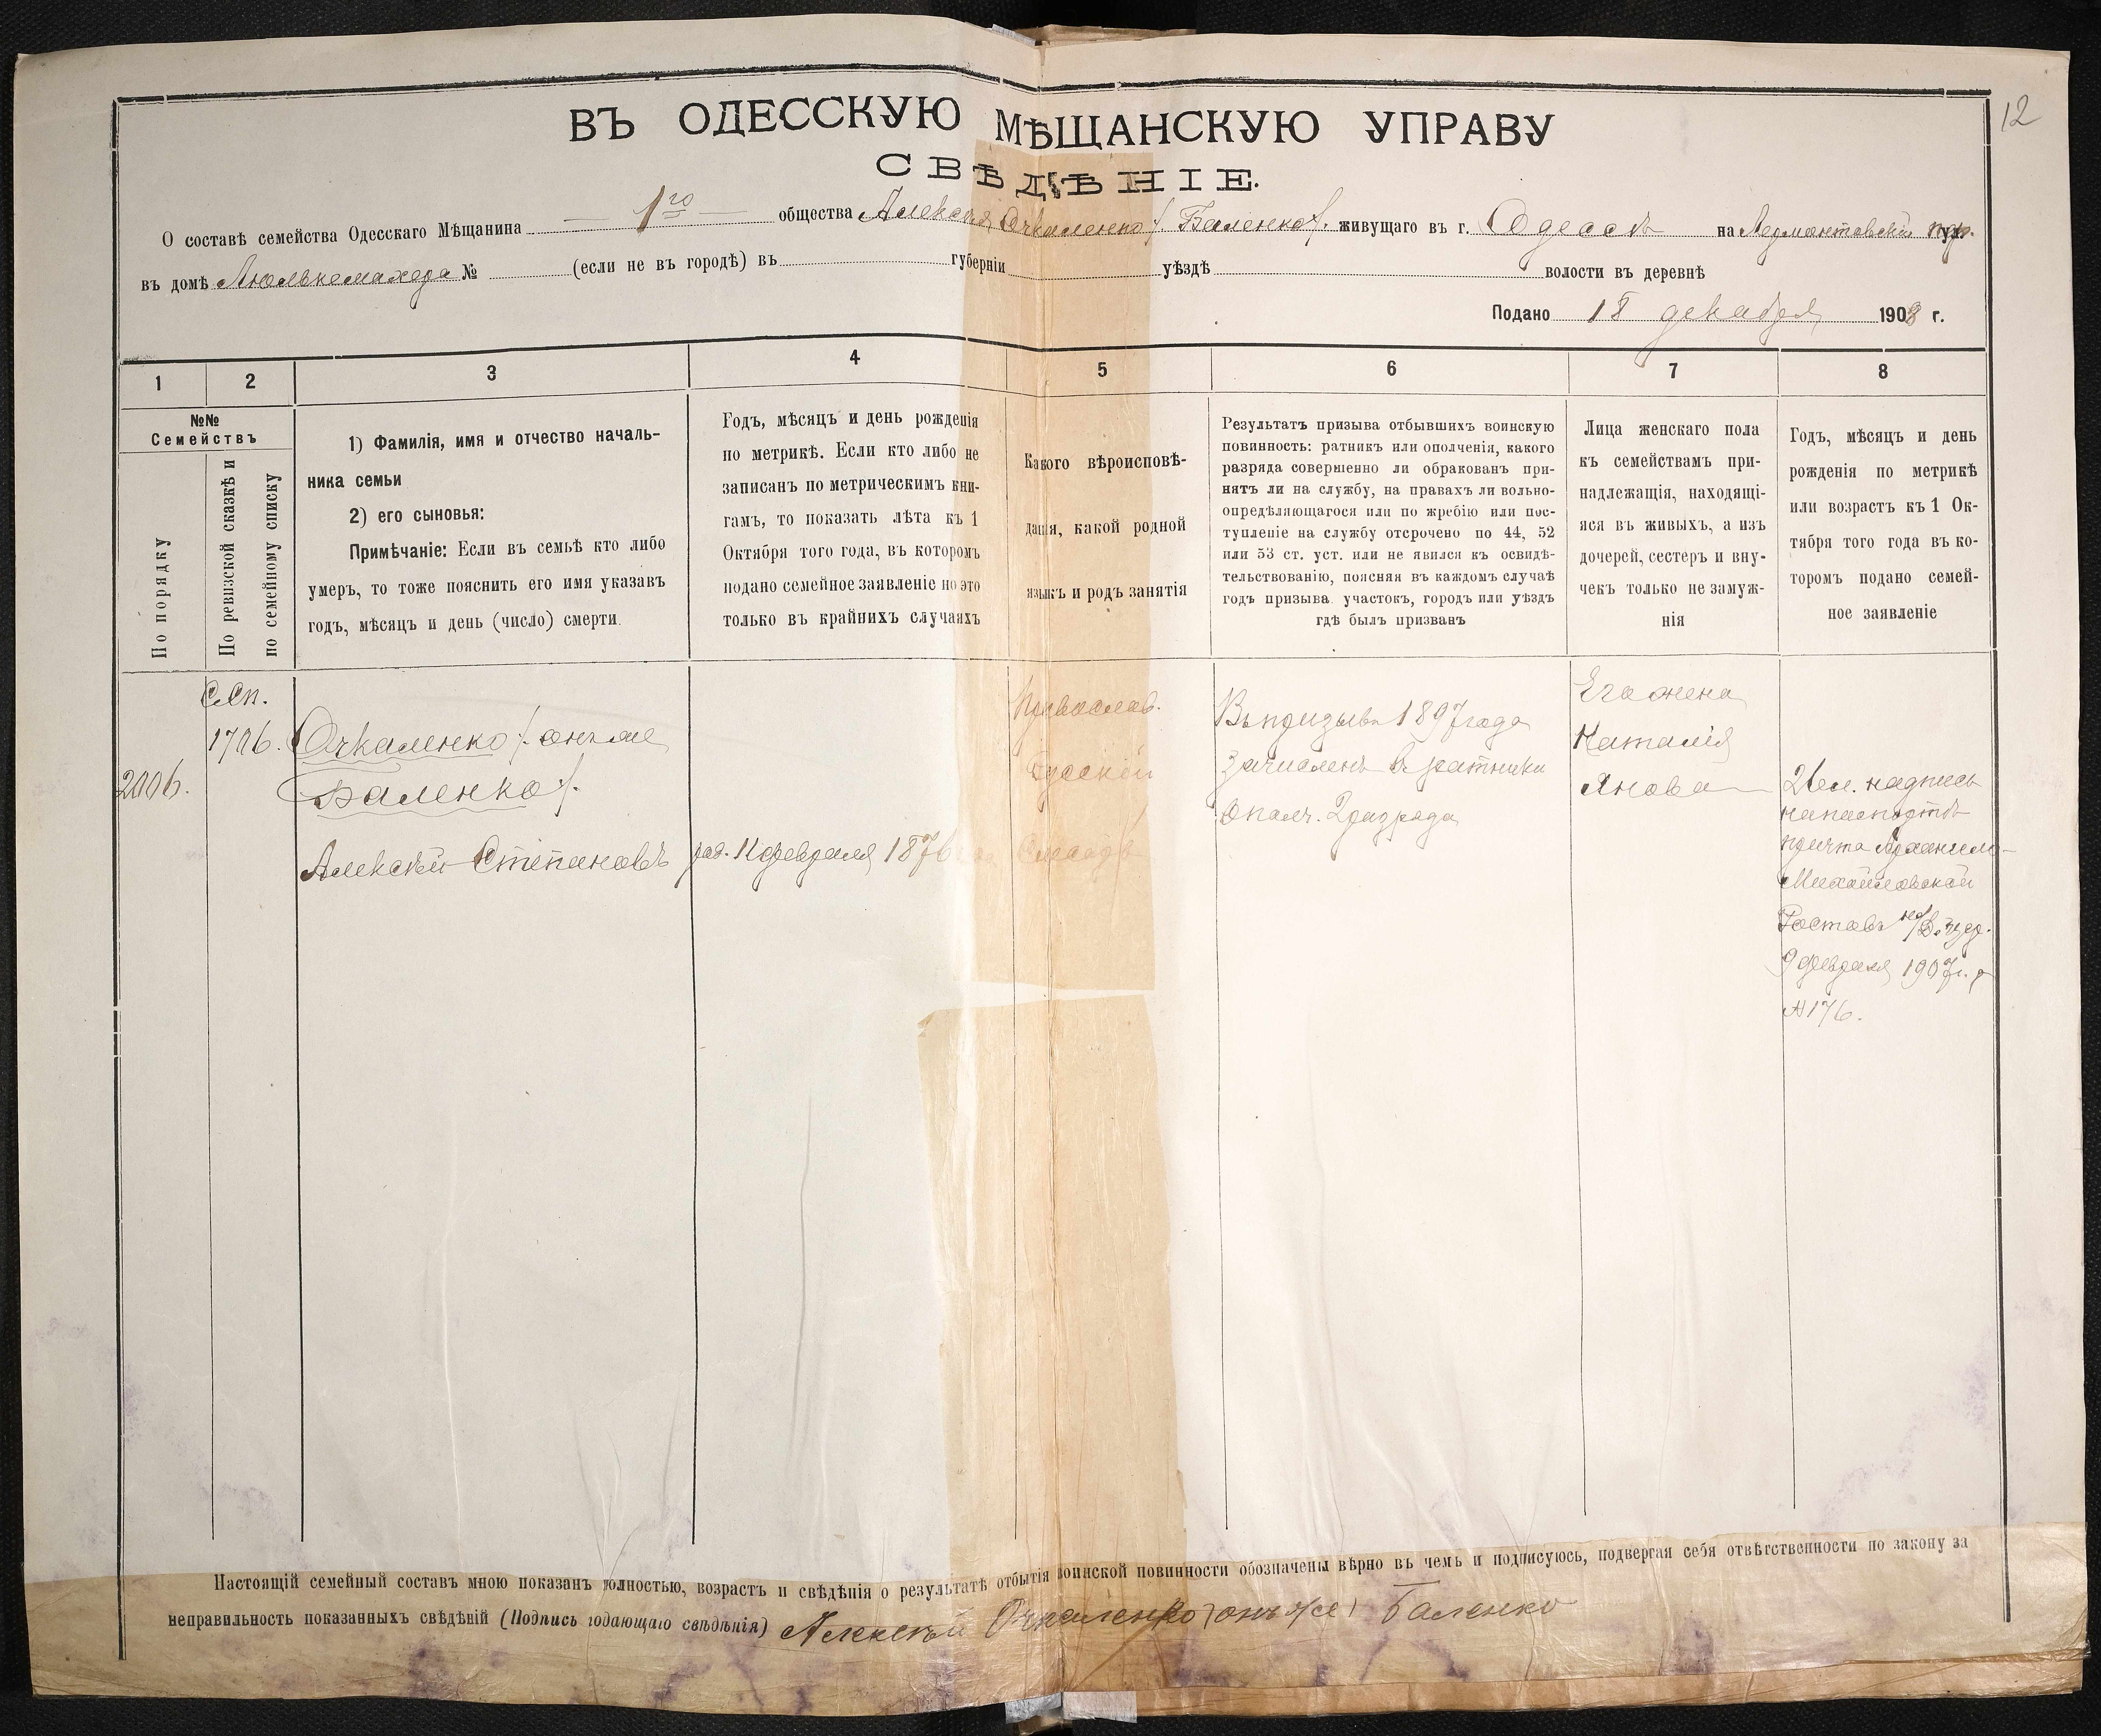 12
ВЪ ОДЕССКУЮ МѢЩАНСКУЮ УПРАВУ
СВѢДѢНІЕ.
О составѣ семейства Одесскаго Мѣщанина 1го общества Алексѣя Очкаленко / Баленко /. живущаго въ г. Одессѣ на Лермонтовскій пер.
въ домѣ Люлькемахера № (если не въ городѣ) въ губерніи уѣздѣ волости въ деревнѣ
Подано 18 декабря 1908 г.
1 2 3 4 5 6 7 8
№№
Семействъ
По порядку
По ревизской сказкѣ и
по семейному списку
1) Фамилія, имя и отчество началь-
ника семьи
2) его сыновья:
Примѣчаніе: Если въ семьѣ кто либо
умеръ, то тоже пояснить его имя указавъ
годъ, мѣсяцъ и день (число) смерти.
Годъ, мѣсяцъ и день рожденія
по метрикѣ. Если кто либо не
записанъ по метрическимъ кни-
гамъ, то показать лѣта къ 1
Октября того года, въ которомъ
подано семейное заявленіе но это
только въ крайнихъ случаяхъ
Какого вѣроисповѣ-
данія, какой родной
языкъ и родъ занятія
Результатъ призыва отбывшихъ воинскую
повинность: ратникъ или ополченія, какого
разряда совершенно ли обракованъ при-
нятъ ли на службу, на правахъ ли вольно-
опредѣляющагося или по жребію или пос-
тупленіе на службу отсрочено по 44, 52
или 53 ст. уст. или не явился къ освидѣ-
тельствованію, поясняя въ каждомъ случаѣ
годъ призыва участокъ, городъ или уѣздъ
гдѣ былъ призванъ
Лица женскаго пола
къ семействамъ при-
надлежащія, находящі-
яся въ живыхъ, а изъ
дочерей, сестеръ и вну-
чекъ только не замуж-
нія
Годъ, мѣсяцъ и день
рожденія по метрикѣ
или возрастъ къ 1 Ок-
тября того года въ ко-
торомъ подано семей-
ное заявленіе
2006.
С.Сп.
1706.
Очкаленко /. онъ же
Баленко /.
Алексѣй Степановъ
род. 11 февраля 1876
Православ.
Русскій
Въ призывъ 1897 года
зачисленъ въ ратники
Ополч. 2 разряда
Его жена
Наталія
Янова
надпись
на паспортѣ
причта Архангело-
Михайловской
Ростовъ на/Д. цер.
9 февраля 1907 г.
№176.
Настоящій семейный составъ мною показанъ полностью, возрастъ и свѣдѣнія о результатѣ отбытія воинской повинности обозначены вѣрно въ чемъ и подписуюсь, подвергая себя отвѣтственности по закону за
неправильность показанныхъ свѣдѣній (Подпись подающаго свѣдѣнія) Алексѣй Очкаленко (онъ же) Баленко